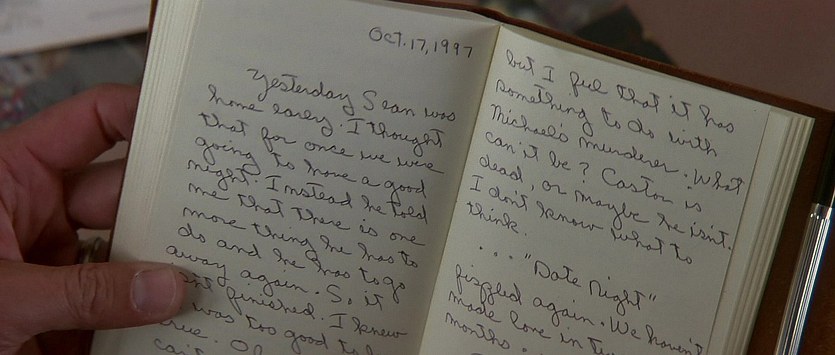 OCT. 17, 1997
Yesterday Sean was
home early. I thought
that for once we were
going to have a good
night. Instead he told
me that there is one
more thing he has to
do and he has to go
away again. So, it
finished. I knew
was too good to
true.
but I feel that it has
something to do with
Michael's murderer. What
can it be? Castor is
dead, or maybe he isn't.
I don't know what to
think.
...."Date Night"
fizzled again. We haven't
made love in
months.